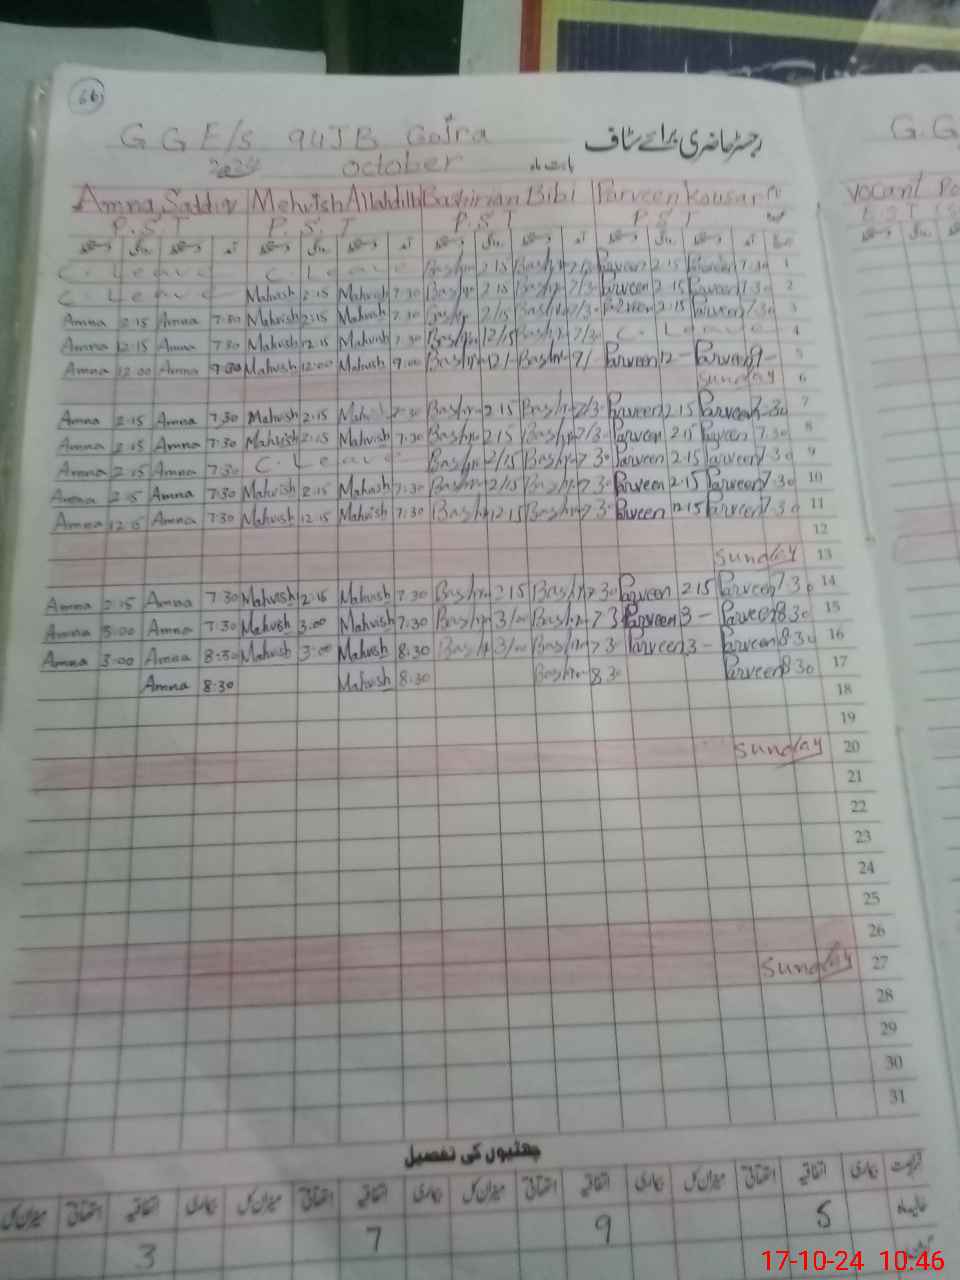 66
G G E/S 94JB Gojra
رجسٹر حاضری برائے سٹاف
G.G
2024 October بابت ماہ
Amna Saddiq Mehvish Allahditta Bashiran Bibi Parveen Kousar
Vocant Po
P.S.T P.S.T P.S.T P.S.T
C. Leave C. Leave Bashir 2 15 Bashir 7/3 Parveen 2.15 Parveen 7.30 1
C. Leave Mahvish 2:15 Mahvish 7.30 Bashir 2 15 Bashir 7/3 Parveen 2.15 Parveen 7.30 2
Amna 2:15 Amna 7:30 Mahvish 2:15 Mahvish 7.30 Bashir 2/15 Bashir 7/3 Parveen 2.15 Parveen 7.30 3
Amna 12:15 Amna 7:30 Mahvish 12.15 Mahvish 7.30 Bashir 12/15 Bashir 7/3 C. Leave 4
Amna 12:00 Amna 9:00 Mahvish 12:00 Mahvish 9:00 Bashir 12/ Bashir 9/ Parveen 12 - Parveen 9 - 5
Sunday 6
Amna 2:15 Amna 7.30 Mahvish 2:15 Mahvish 7:30 Bashir 2 15 Bashir 7/3 Parveen 2.15 Parveen 7.30 7
Amna 2:15 Amna 7:30 Mahvish 2:15 Mahvish 7:30 Bashir 2 15 Bashir 7/3 Parveen 2.15 Parveen 7.30 8
Amna 2:15 Amna 7:30 C. Leave Bashir 2/15 Bashir 7 30 Parveen 2.15 Parveen 7.30 9
Amna 2:15 Amna 7:30 Mahvish 2:15 Mahvish 7:30 Bashir 2/15 Bashir 7 30 Parveen 2.15 Parveen 7.30 10
Amna Amna 7:30 Mahvish 12 15 Mahvish 7:30 Bashir 12 15 Bashir 7 30 Parveen 12.15 Parveen 7.30 11
12
Sunday 13
Amna 2:15 Amna 7:30 Mahvish 2:15 Mahvish 7.30 Bashir 2 15 Bashir 7 30 Parveen 2.15 Parveen 7.30 14
Amna 3:00 Amna 7:30 Mahvish 3:00 Mahvish 7:30 Bashir 3/00 Bashir 7 3 Parveen 3 - Parveen 8.30 15
Amna 3:00 Amna 8:30 Mahvish 3:00 Mahvish 8:30 Bashir 3/00 Bashir 7 3 Parveen 3 - Parveen 8.30 16
Amna 8:30 Mahvish 8.30 Bashir 8 30 Parveen 8.30 17
18
19
Sunday 20
21
22
23
24
25
26
Sunday 27
28
29
30
31
چھٹیوں کی تفصیل
میزان کل اتفاقیہ بیماری میزان کل اتفاقیہ بیماری میزان کل اتفاقیہ بیماری میزان کل اتفاقیہ بیماری
3 7 9 5
17-10-24 10:46